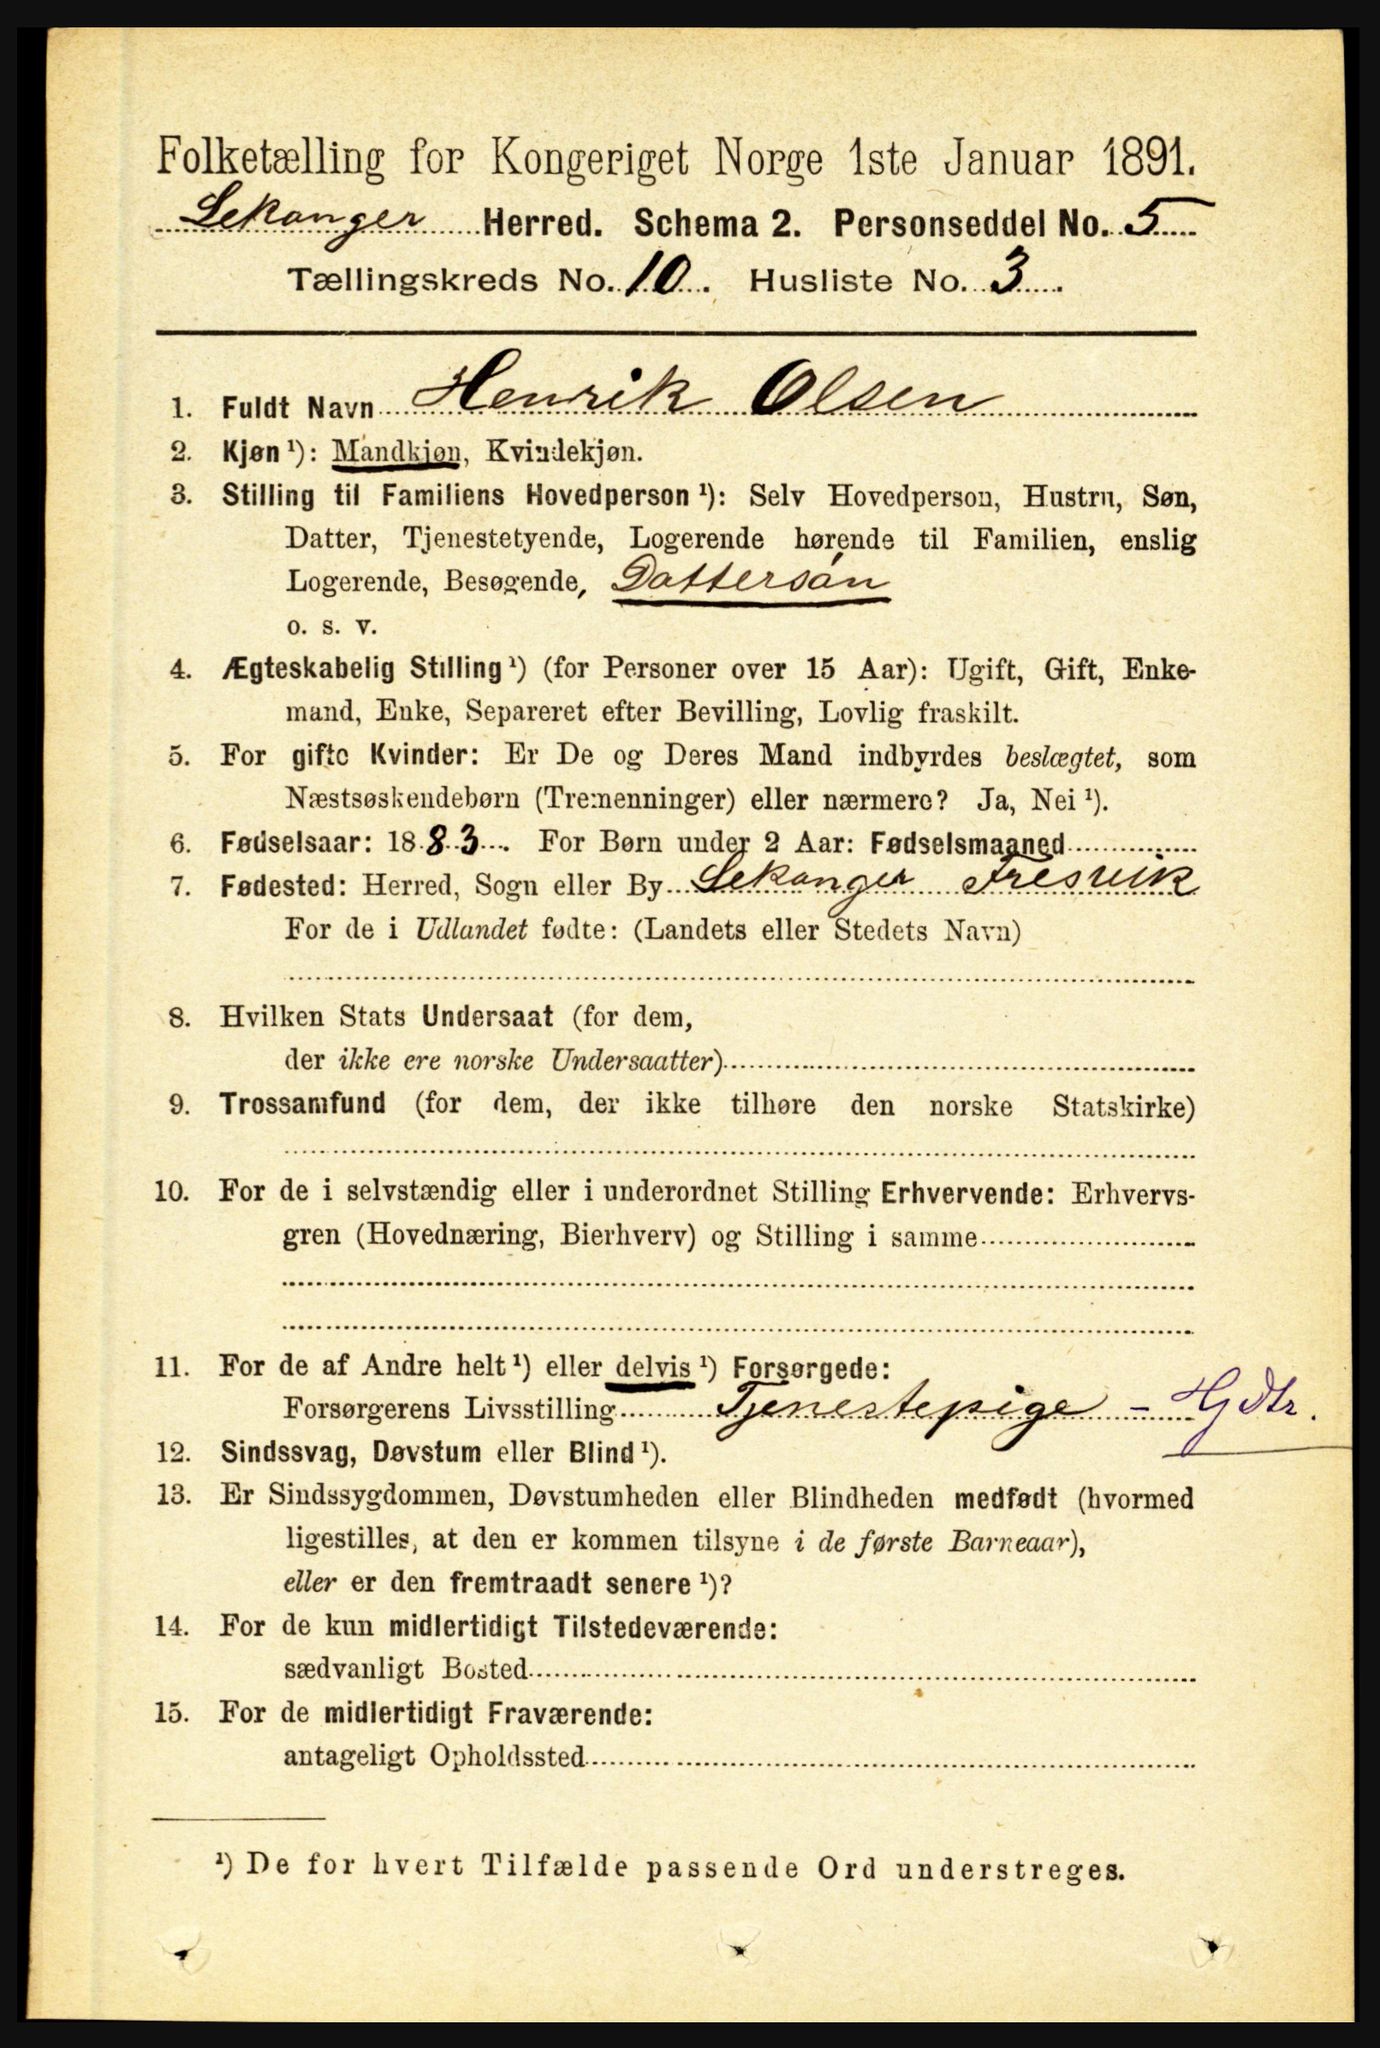 Folketælling for Kongeriget Norge 1ste Januar 1891.
Lekanger Herred. Schema 2. Personseddel No. 5
Tællingskreds No. 10. Husliste No. 3.
1. Fuldt Navn Henrik Olsen
2. Kjøn ¹): Mandkjøn, Kvindekjøn.
3. Stilling til Familiens Hovedperson ¹): Selv Hovedperson, Hustru, Søn,
Datter, Tjenestetyende, Logerende hørende til Familien, enslig
Logerende, Besøgende, Dattersøn
o. s. v.
4. Ægteskabelig Stilling ¹) (for Personer over 15 Aar): Ugift, Gift, Enke-
mand, Enke, Separeret efter Bevilling, Lovlig fraskilt.
5. For gifte Kvinder: Er De og Deres Mand indbyrdes beslægtet, som
Næstsøskendebørn (Tremenninger) eller nærmere? Ja, Nei ¹).
6. Fødselsaar: 1883. For Børn under 2 Aar: Fødselsmaaned
7. Fødested: Herred, Sogn eller By Lekanger Fresvik
For de i Udlandet fødte: (Landets eller Stedets Navn)
8. Hvilken Stats Undersaat (for dem,
der ikke ere norske Undersaatter)
9. Trossamfund (for dem, der ikke tilhøre den norske Statskirke)
10. For de i selvstændig eller i underordnet Stilling Erhvervende: Erhvervs-
gren (Hovednæring, Bierhverv) og Stilling i samme
11. For de af Andre helt ¹) eller delvis ¹) Forsørgede:
Forsørgerens Livsstilling Tjenestepige - Hjdtr.
12. Sindssvag, Døvstum eller Blind ¹).
13. Er Sindssygdommen, Døvstumheden eller Blindheden medfødt (hvormed
ligestilles, at den er kommen tilsyne i de første Barneaar),
eller er den fremtraadt senere ¹)?
14. For de kun midlertidigt Tilstedeværende:
sædvanligt Bosted
15. For de midlertidigt Fraværende:
antageligt Opholdssted
¹) De for hvert Tilfælde passende Ord understreges.